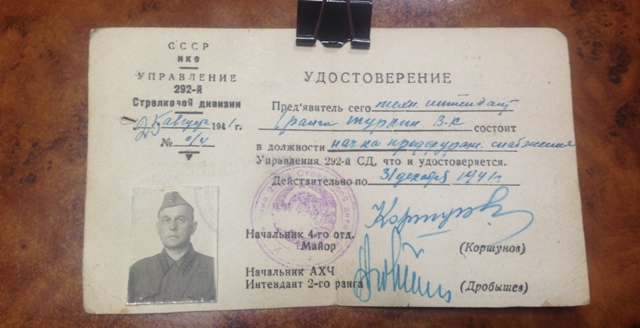 СССР
НКО
УПРАВЛЕНИЕ
292-й
Стрелковой дивизии
25 август 1941 г.
№
УДОСТОВЕРЕНИЕ
Пред'явитель сего техн. интендант
ранга Туркин З.К состоит
в должности нач-ка продфураж. снабжения
Управления 292-й СД, что и удостоверяется.
Действительно по 31 декабря 1941 г.
Начальник 4-го отд.
Майор
(Коршунов)
Начальник АХЧ
Интендант 2-го ранга
(Дробышев)